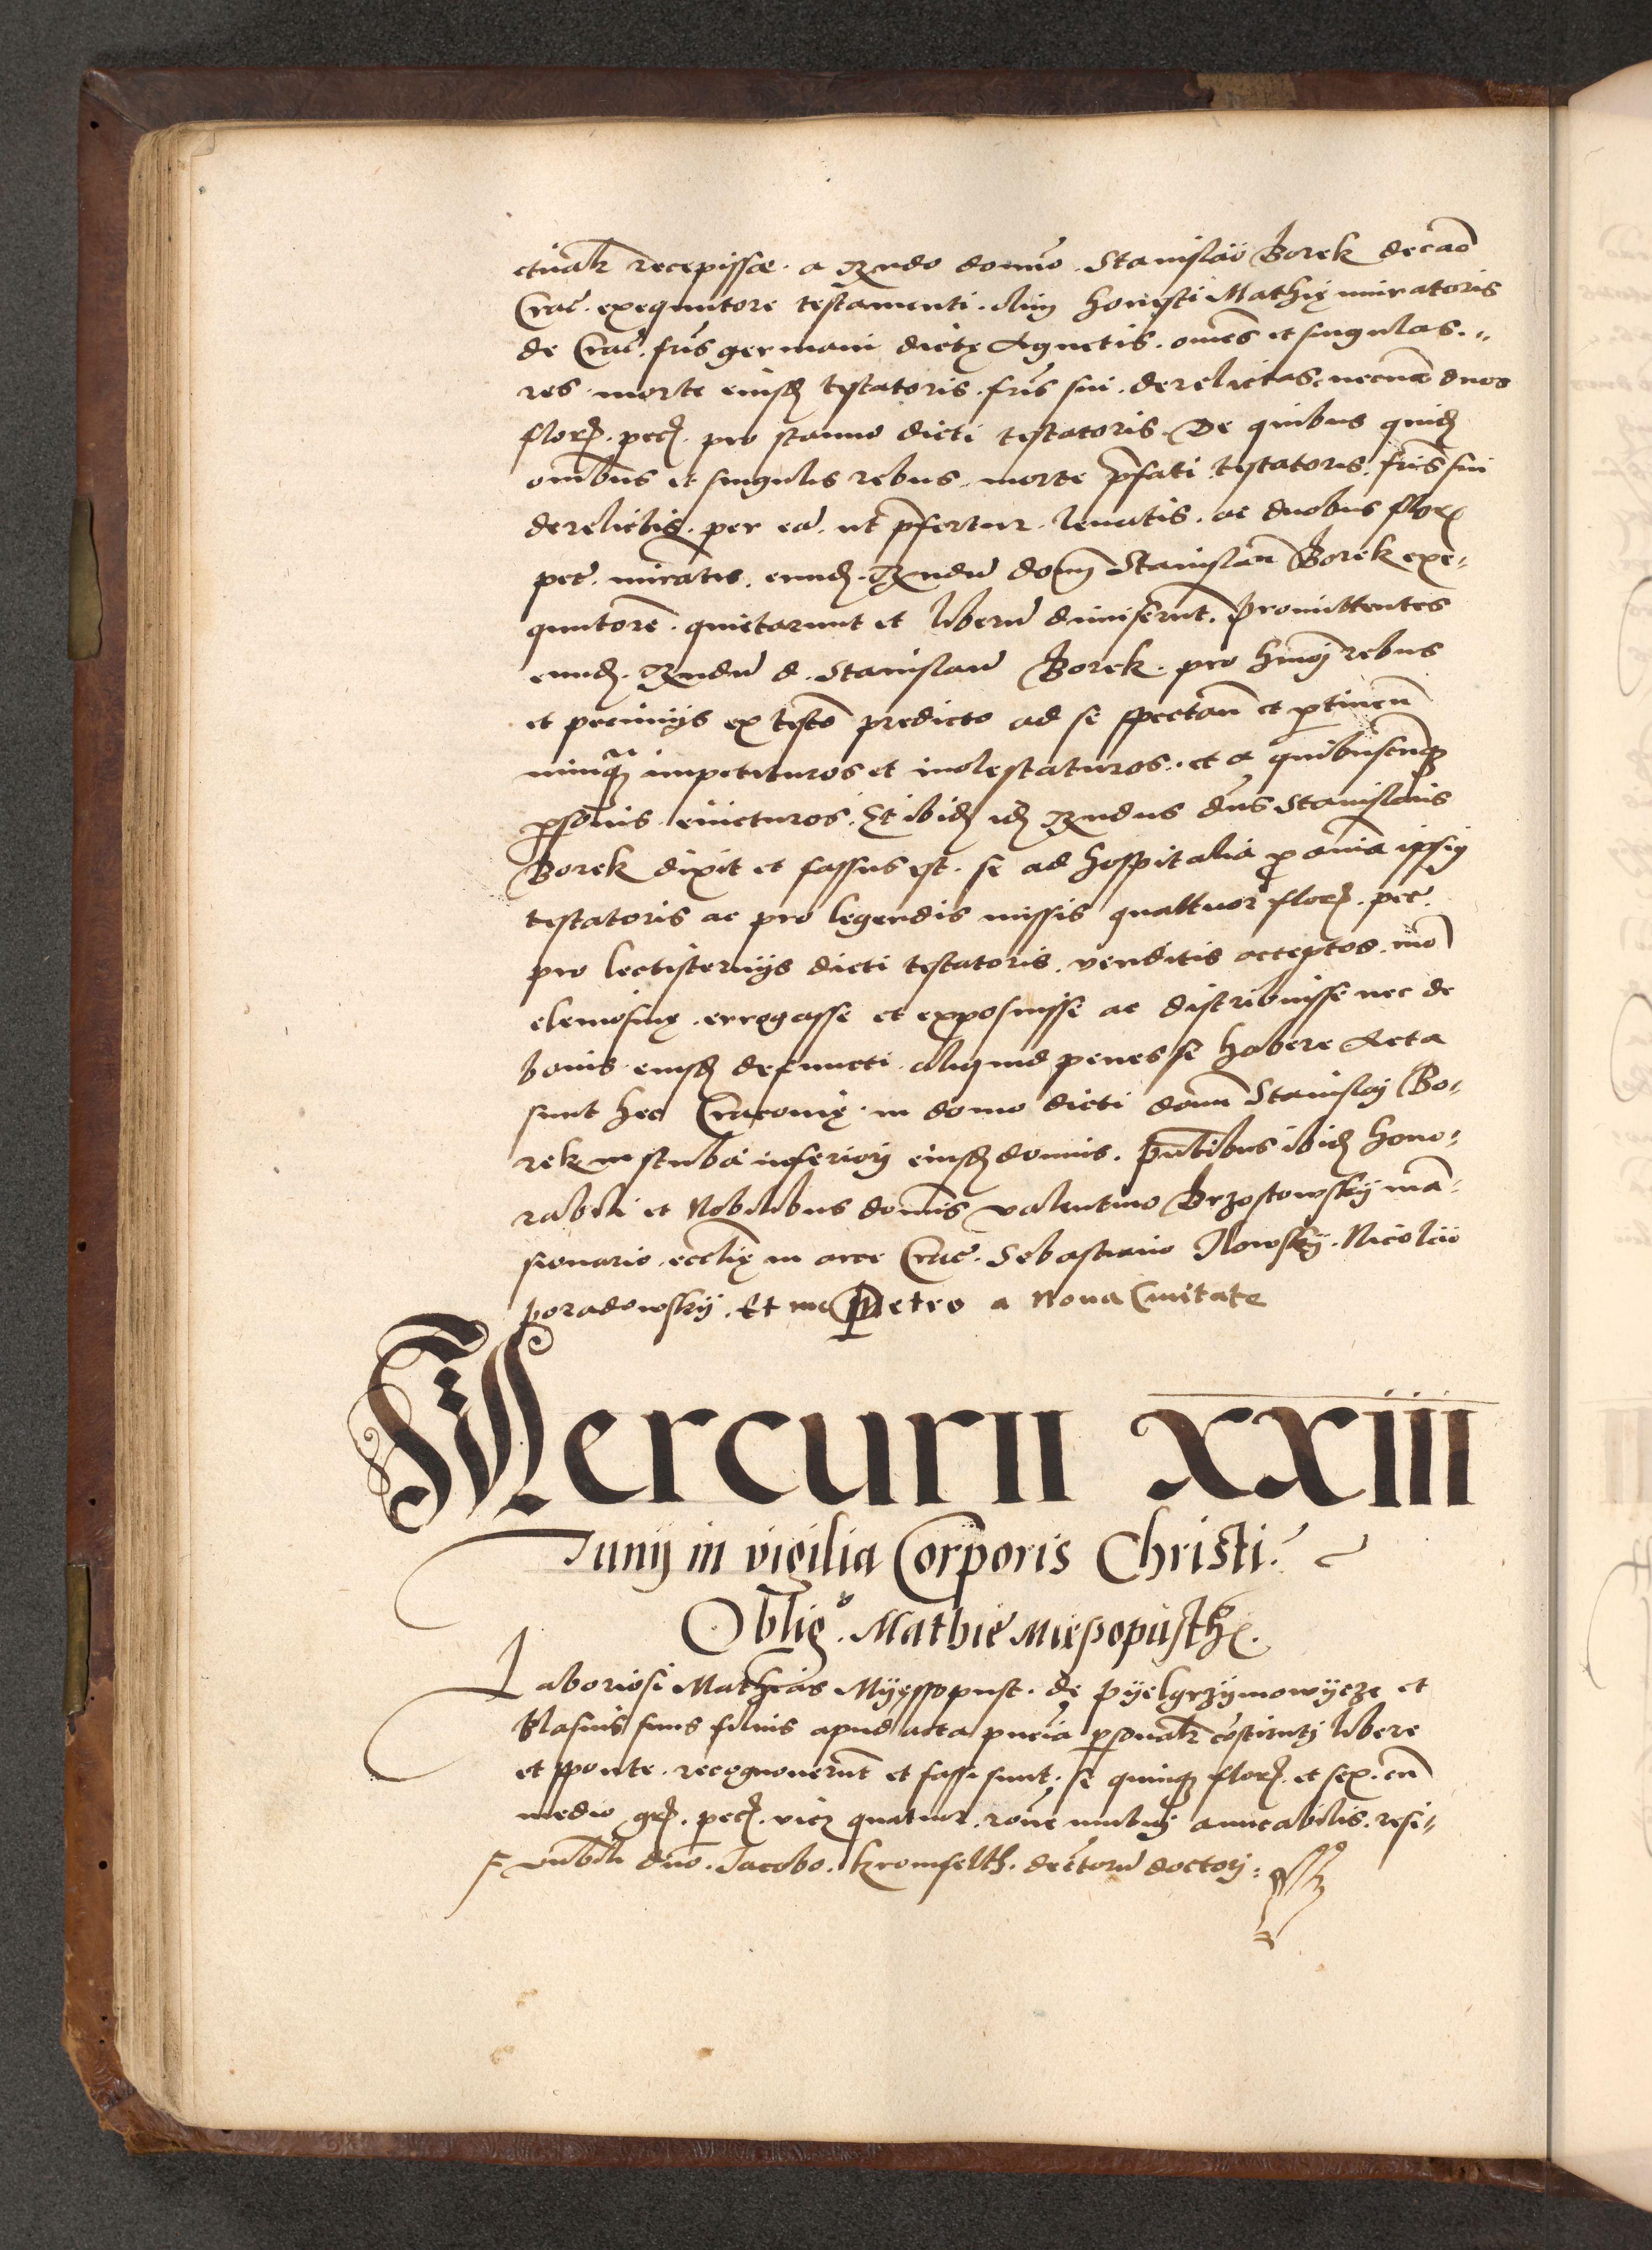 ctualr recepisse. a Rndo domino. Stanislao Borek decano
Crac. exequutore testamenti. olim honesti Mathię muratoris
de Crac. fris germani dictę Agnetis. omes et singulas.
res morte eiusd testatoris. fris sui. derelictas. necno duos
flor. pec. pro stanno dicti testatoris. De quibus quid
omibus et singulis rebus. morte pfati testatoris. fris sui
derelictis. per ea. ut pfertur. leuatis. ac duobus flor
pec. eund. Rndu dom Stanislau Borek exe-
quutore. quietarunt et liberu dimiserut. Promittentes
eund. Rndu d. Stanislau Borek. pro hmoi rebus
et pecunijs ex testo predicto ad se spectan et ptinen
nunq impetituros et molestaturos. et a quibuscunq
psonis euicturos. Et ibid id Rndus dns Stanislaus
Borek dixit et fassus est. se ad hospitalia p aima ipsius
testatoris ac pro legendis missis quattuor flor. pec.
pro lectisternijs dicti testatoris. venditis acceptos. mo
elemosinę. errogasse et exposuisse ac distribuisse nec de
bonis eiusd defuncti aliquid penes se habere Acta
sunt hec Cracovię. in domo dicti domi Stanislaj Bo-
rek in stuba inferiorj eiusd domus. pntibus ibid hono-
rabili et Nobilibus domis Valentino Brzostowskÿ man-
sionario. ecclię in arce Crac. Sebastiano Ilowskÿ. Nicolao
Poradowskÿ. Et me Petro a Nova Civitate
Mercurii xxiiii
Iunÿ in vigilia Corporis Christi.
Oblig. Mathie Miesopusth.
Laboriosi Mathias Mÿessopust. de Pÿelgrzÿmowÿcze et
Blasius suus filius apud acta pncia psonalr costituti libere
et sponte. recognouerut et fassi sunt. se quinq flor. et sex. cu
medio gr. pec. vicz quatuor. roe mutui amicabilis. resi-
vnbili dno. Jacobo. Kromfelth. decretoru doctorj.